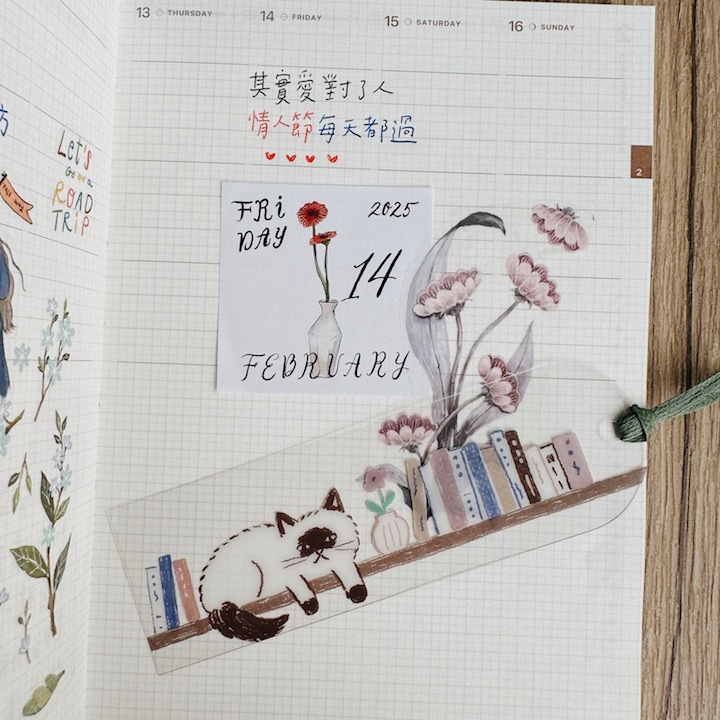 13 THURSDAY
14 FRIDAY
15 SATURDAY
16 SUNDAY
其實愛對了人
情人節每天都過
2
Let's
Go on a
ROAD
TRIP
FRi
DAY
2025
14
FEBRUARY